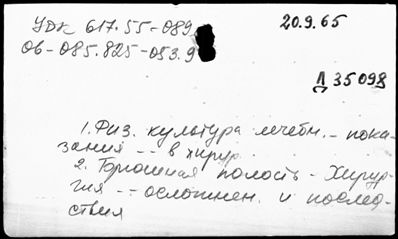 УДК 617.55-089
20.9.65
06-085.825-053.9
Д 35098
1. Физ. культура лечебн. - пока-
зания -- в хирур.
2. Брюшная полость - Хирур-
гия -- осложнен. и послед-
ствия